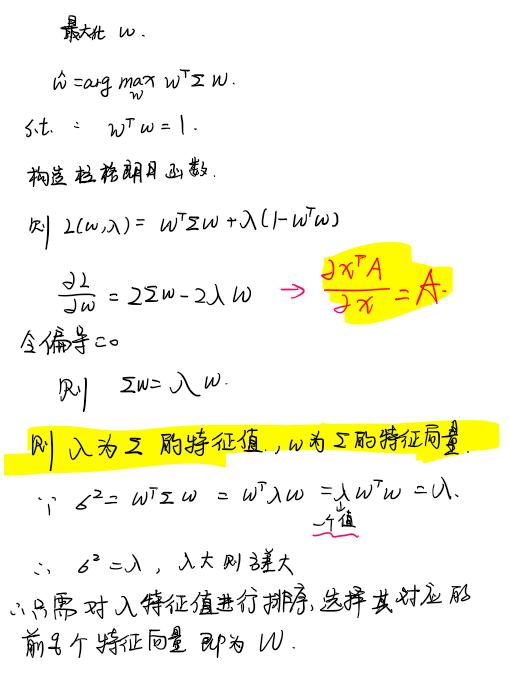 最大化 w.
ŵ = arg max_w wᵀΣw.
s.t. : wᵀw = 1.
构造拉格朗日函数.
则 L(w,λ) = wᵀΣw + λ(1-wᵀw)
∂L/∂w = 2Σw - 2λw → ∂xᵀA/∂x = A.
令偏导=0
则 Σw = λw.
则 λ为Σ的特征值, w为Σ的特征向量.
∵ σ² = wᵀΣw = wᵀλw = λwᵀw = λ.
一个值
∴ σ² = λ, λ大则差大
∴只需对λ特征值进行排序,选择其对应的
前 个特征向量即为W.